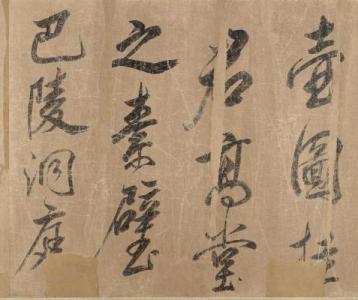 壺圖挂
君高堂
之素壁
巴陵洞庭